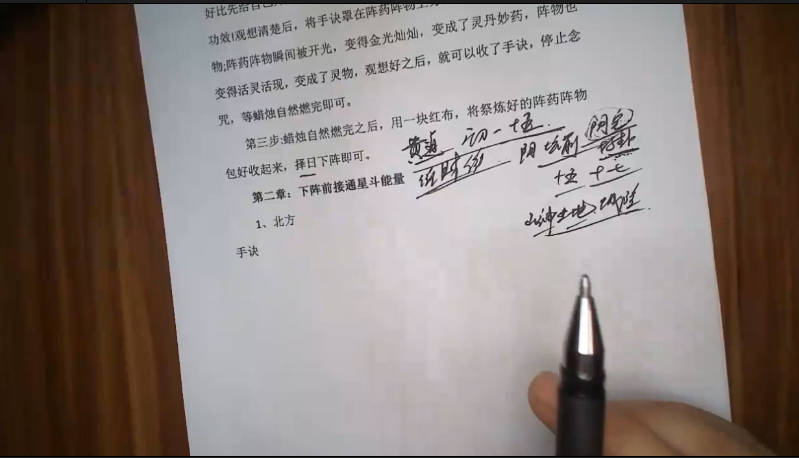 好比先给自己
功效!观想清楚后，将手诀罩在阵药阵物上
物;阵药阵物瞬间被开光，变得金光灿灿，变成了灵丹妙药，阵物也
变得活灵活现，变成了灵物，观想好之后，就可以收了手诀，停止念
咒，等蜡烛自然燃完即可。
第三步:蜡烛自然燃完之后，用一块红布，将祭炼好的阵药阵物
包好收起来，择日下阵即可。
黄道 初一 十五
阴
十五 十七
第二章：下阵前接通星斗能量
山神土地 城隍
1、北方
手诀